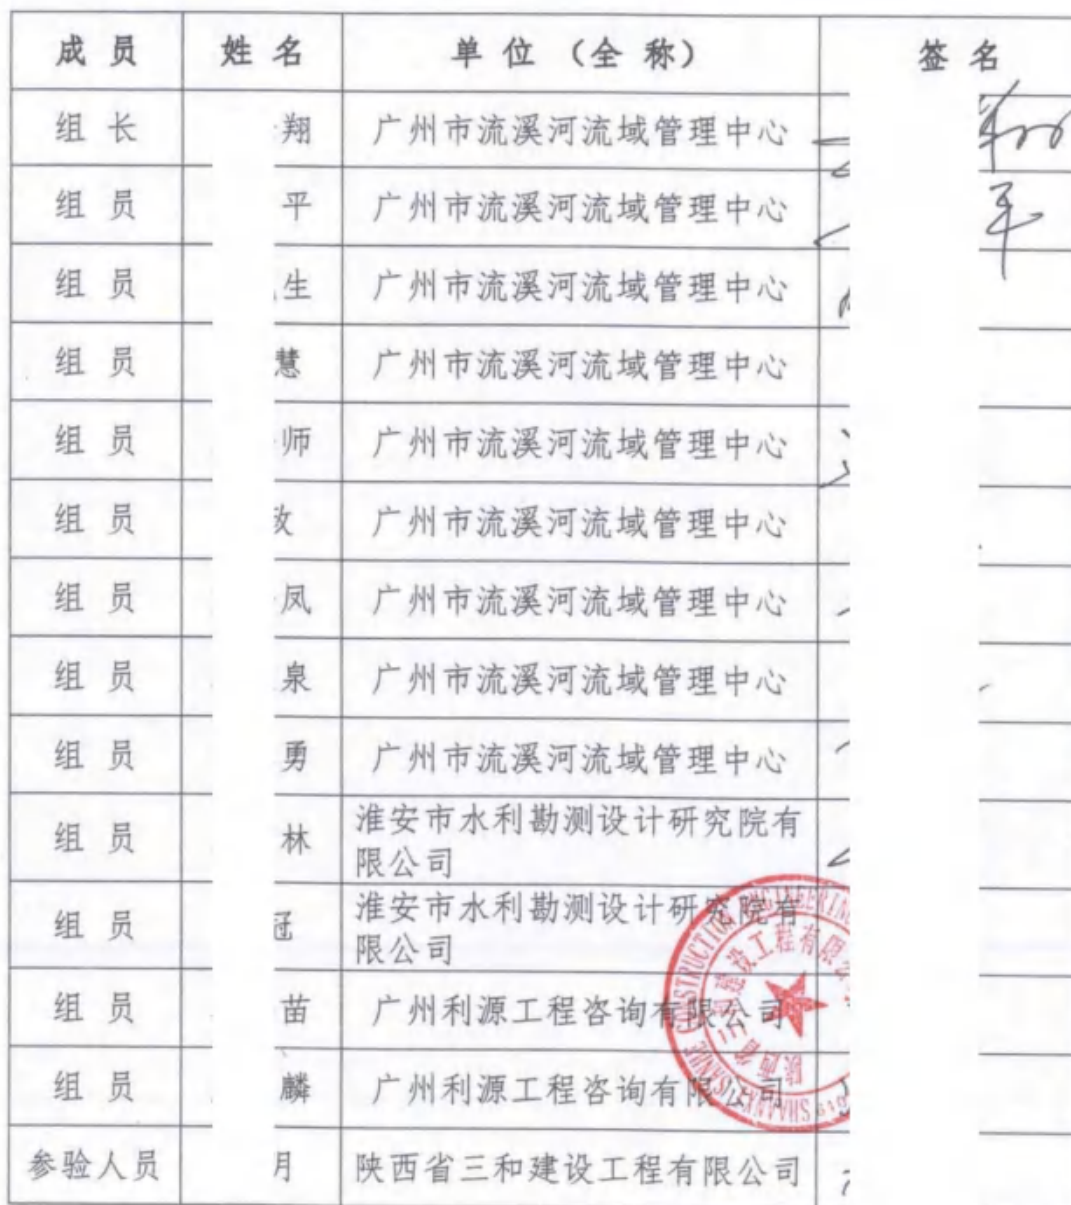 成 员 姓 名 单 位 （全 称） 签 名
组 长 翔 广州市流溪河流域管理中心
组 员 平 广州市流溪河流域管理中心 平
组 员 生 广州市流溪河流域管理中心
组 员 慧 广州市流溪河流域管理中心
组 员 师 广州市流溪河流域管理中心
组 员 广州市流溪河流域管理中心
组 员 凤 广州市流溪河流域管理中心
组 员 泉 广州市流溪河流域管理中心
组 员 勇 广州市流溪河流域管理中心
组 员 林 淮安市水利勘测设计研究院有
限公司
组 员 冠 淮安市水利勘测设计研究院有
限公司
组 员 苗 广州利源工程咨询有限公司
组 员 麟 广州利源工程咨询有限公司
参验人员 月 陕西省三和建设工程有限公司